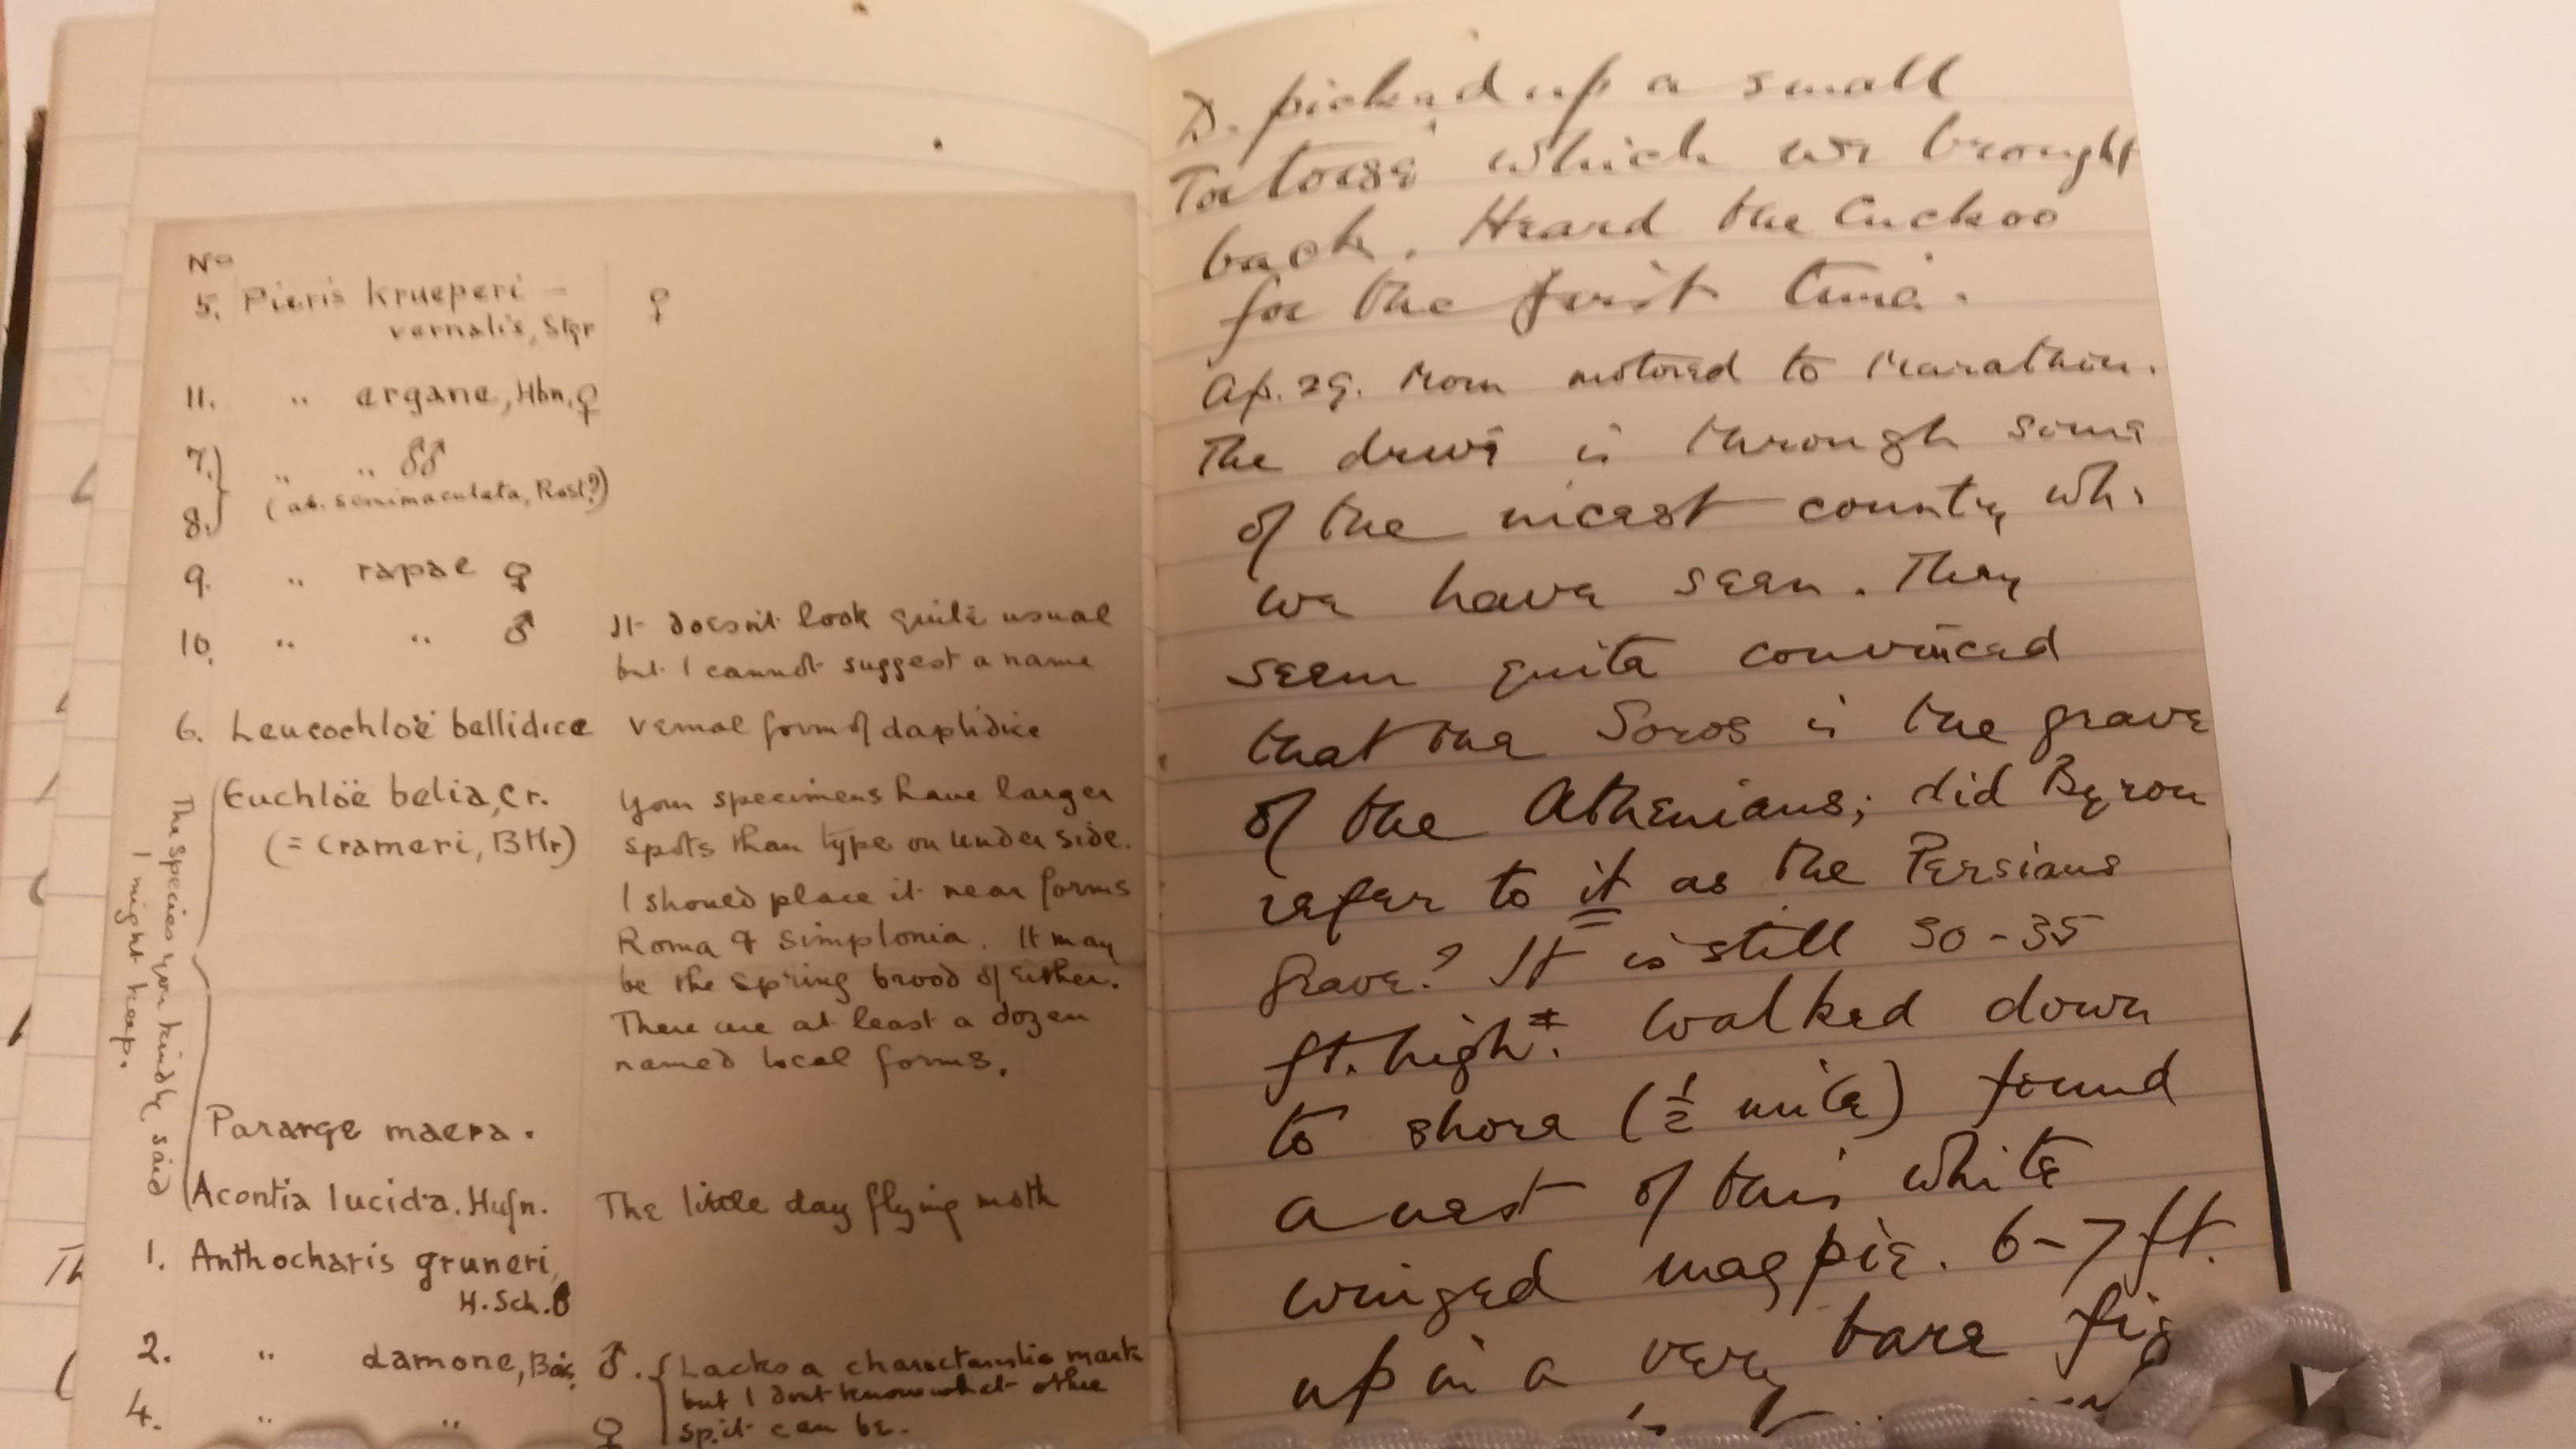 No
5. Pieris krueperi — ♀
vernalis, Stgr
11. " ergane, Hbn, ♀
7.} " " ♂♂
8.} (ab. semimaculata, Rost?)
9. " rapae ♀
10. " " ♂ It doesn't look quite usual
but I cannot suggest a name
6. Leucochloë bellidice vernal form of daplidice
The species you kindly said
I might keep.
Euchloë belia, Cr. Your specimens have larger
(= crameri, Btlr) spots than type on under side.
I should place it near forms
Roma & Simplonia. It may
be the spring brood of either.
There are at least a dozen
named local forms.
Pararge maera.
Acontia lucida. Hufn. The little day flying moth
1. Anthocharis gruneri,
H. Sch. ♂
2. " damone, Bois, ♂. { Lacks a characteristic mark
but I dont know what other
4. " " ♀ sp. it can be.
D. picked up a small
Tortoise which we brought
back. Heard the Cuckoo
for the first time.
Ap. 29. Morn motored to Marathon.
The drive is through some
of the nicest country wh.
we have seen. They
seem quite convinced
that the Soros is the grave
of the Athenians; did Byron
refer to it as the Persians
grave? It is still 30-35
ft. high*. Walked down
to shore (½ mile) found
a nest of this white
winged magpie. 6-7 ft.
up in a very bare fig